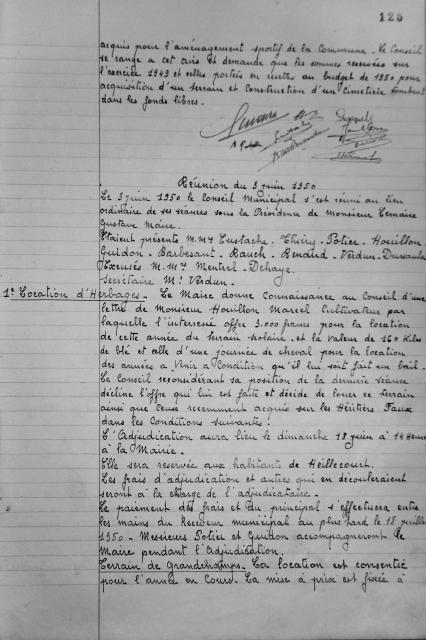 125
acquis pour l'aménagement sportif de la Commune. Le Conseil
se range a cet avis et demande que les sommes réservées sur
l'exercice 1949 et celles portées en recettes au budget de 1950 pour
acquisition d'un terrain et Construction d'un Cimetière tombent
dans les fonds libres.
Réunion du 3 juin 1950
Le 3 juin 1950 le Conseil Municipal s'est réuni au lieu
ordinaire de ses séances sous la Présidence de Monsieur Lemaire
Gustave Maire.
Etaient présents M.Mrs Eustache. Thiéry. Potier. Houillon
Guidon. Barbesant. Rauch. Renaud. Verdun.
Excusés M.Mrs Mentrel. Dehaye.
Secrétaire Mr Verdun.
1° Location d'Herbages. Le Maire donne connaissance au Conseil d'une
lettre de Monsieur Houillon Marcel Cultivateur par
laquelle l'intéressé offre 3.000 frams pour la location
de cette année du terrain scolaire. et la valeur de 160 Kilos
de blé et celle d'une journée de cheval pour la location
des années a Venir a Condition qu'il lui soit fait un bail.
Le Conseil reconsidérant sa position de la dernière séance
décline l'offre qui lui est faite et décide de louer ce terrain
ainsi que Ceux récemment acquis sur les Héritiers Faux
dans les Conditions suivantes :
L'Adjudication aura lieu le dimanche 18 juin à 14 Heures
à la Mairie.
Elle sera réservée aux habitants de Heillecourt.
Les frais d'adjudication et autres qui en découleraient
seront à la charge de l'adjudicataire.
Le paiement des frais et du principal s'effectuera entre
les mains du Receveur municipal au plus tard le 18 juillet
1950 - Messieurs Potier et Guidon accompagneront le
Maire pendant l'Adjudication.
Terrain de Grandchamps. La location est consentie
pour l'année en Cours. La mise à prix est fixée à